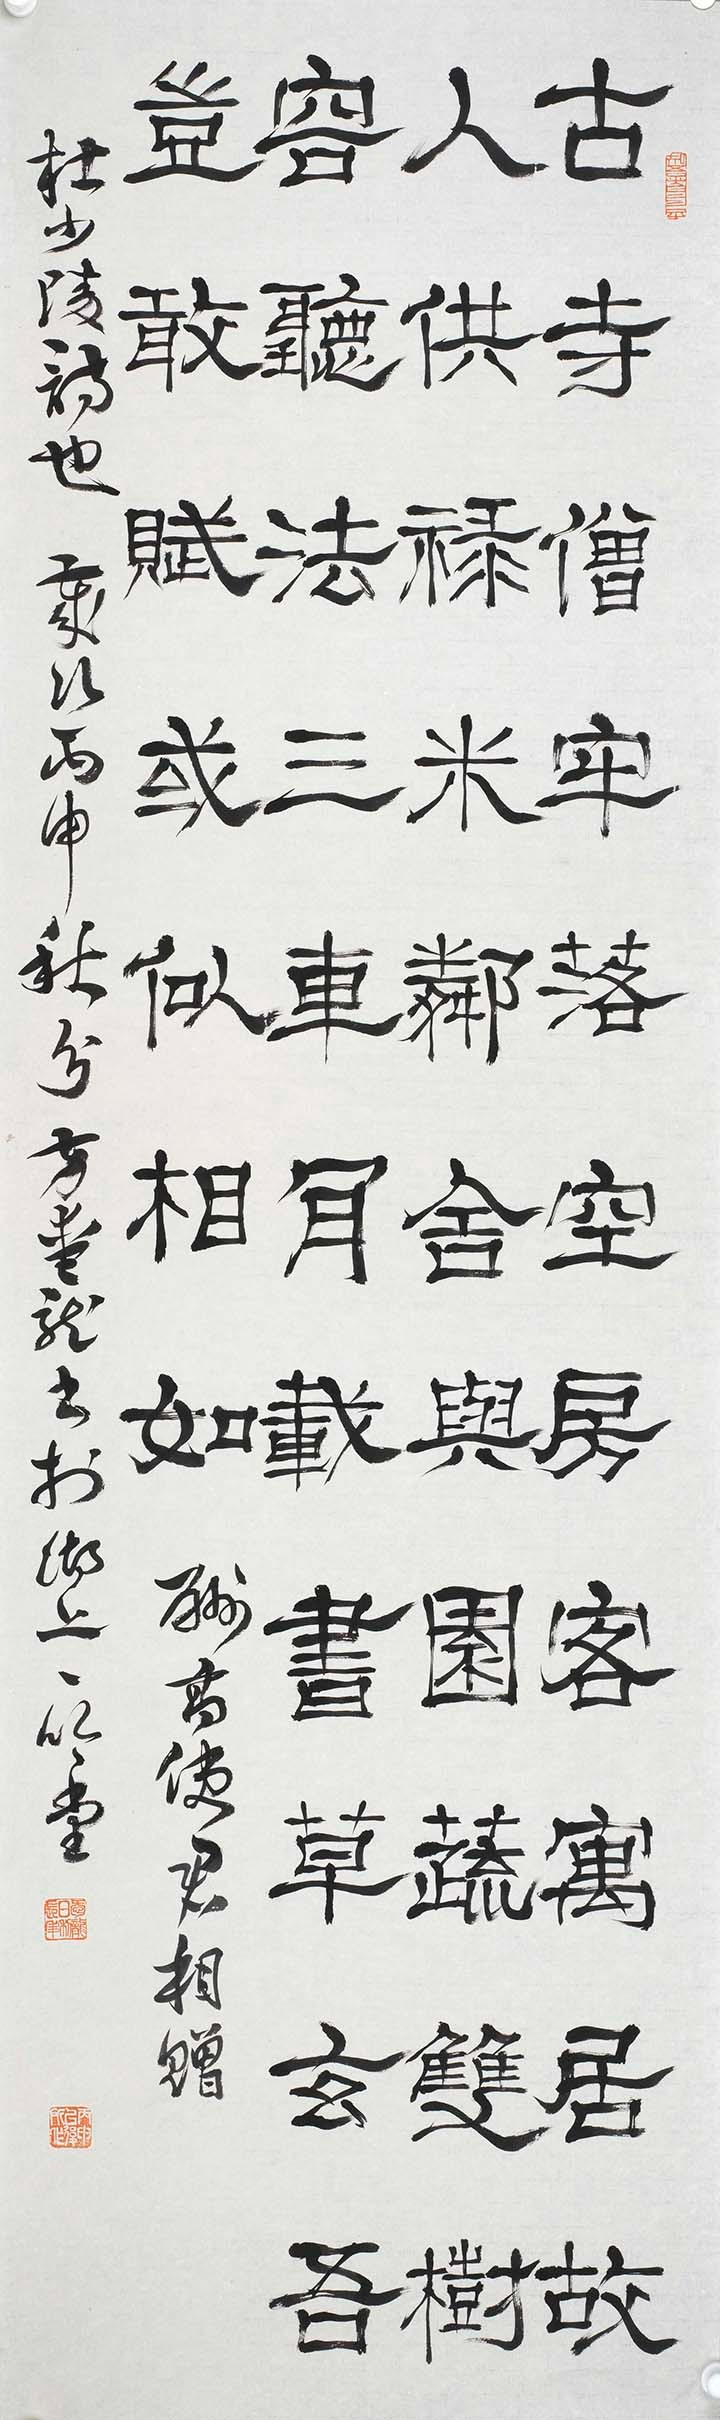 古寺僧牢落空房客寓居故
人供禄米鄰舍與園蔬雙樹
容聽法三車肯載書草玄吾
豈敢賦或似相如 酬高使君相贈
杜少陵詩也 歲次丙申秋分方愛龍書於湖上 堂